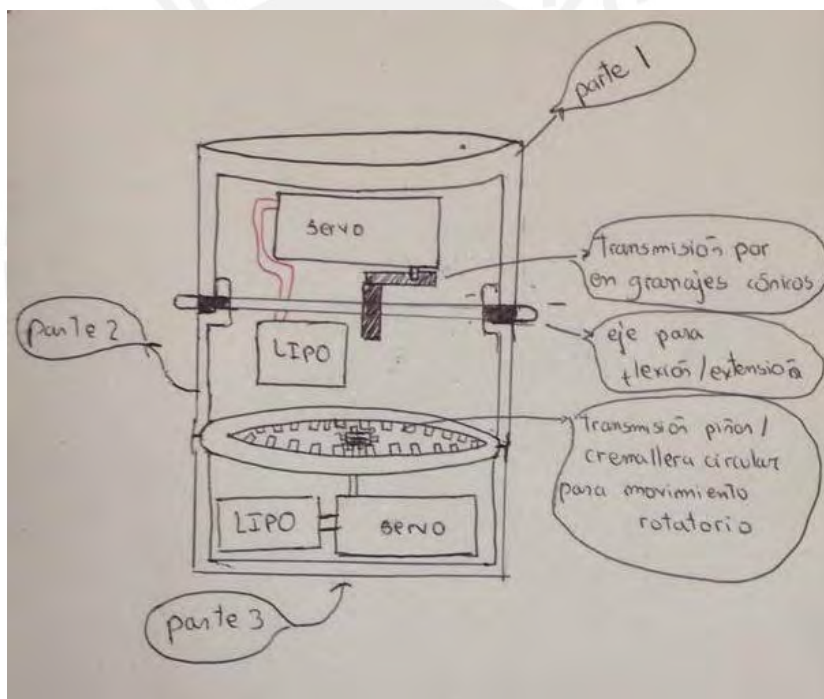 parte 1
servo
Transmisión por
en granajes cónicos
parte 2
LIPO
eje para
flexión/extensión
Transmisión piñon/
cremallera circular
para movimiento
rotatorio
LIPO
servo
parte 3